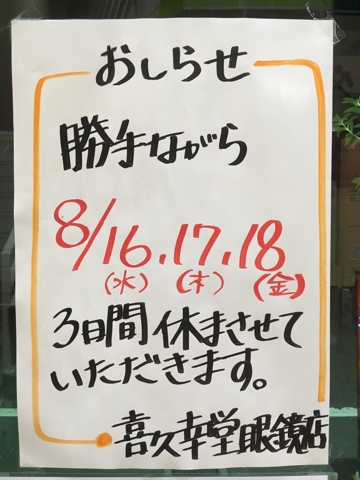 おしらせ
勝手ながら
8/16.17.18
(水) (木) (金)
3日間休まさせて
いただきます。
喜久幸堂眼鏡店